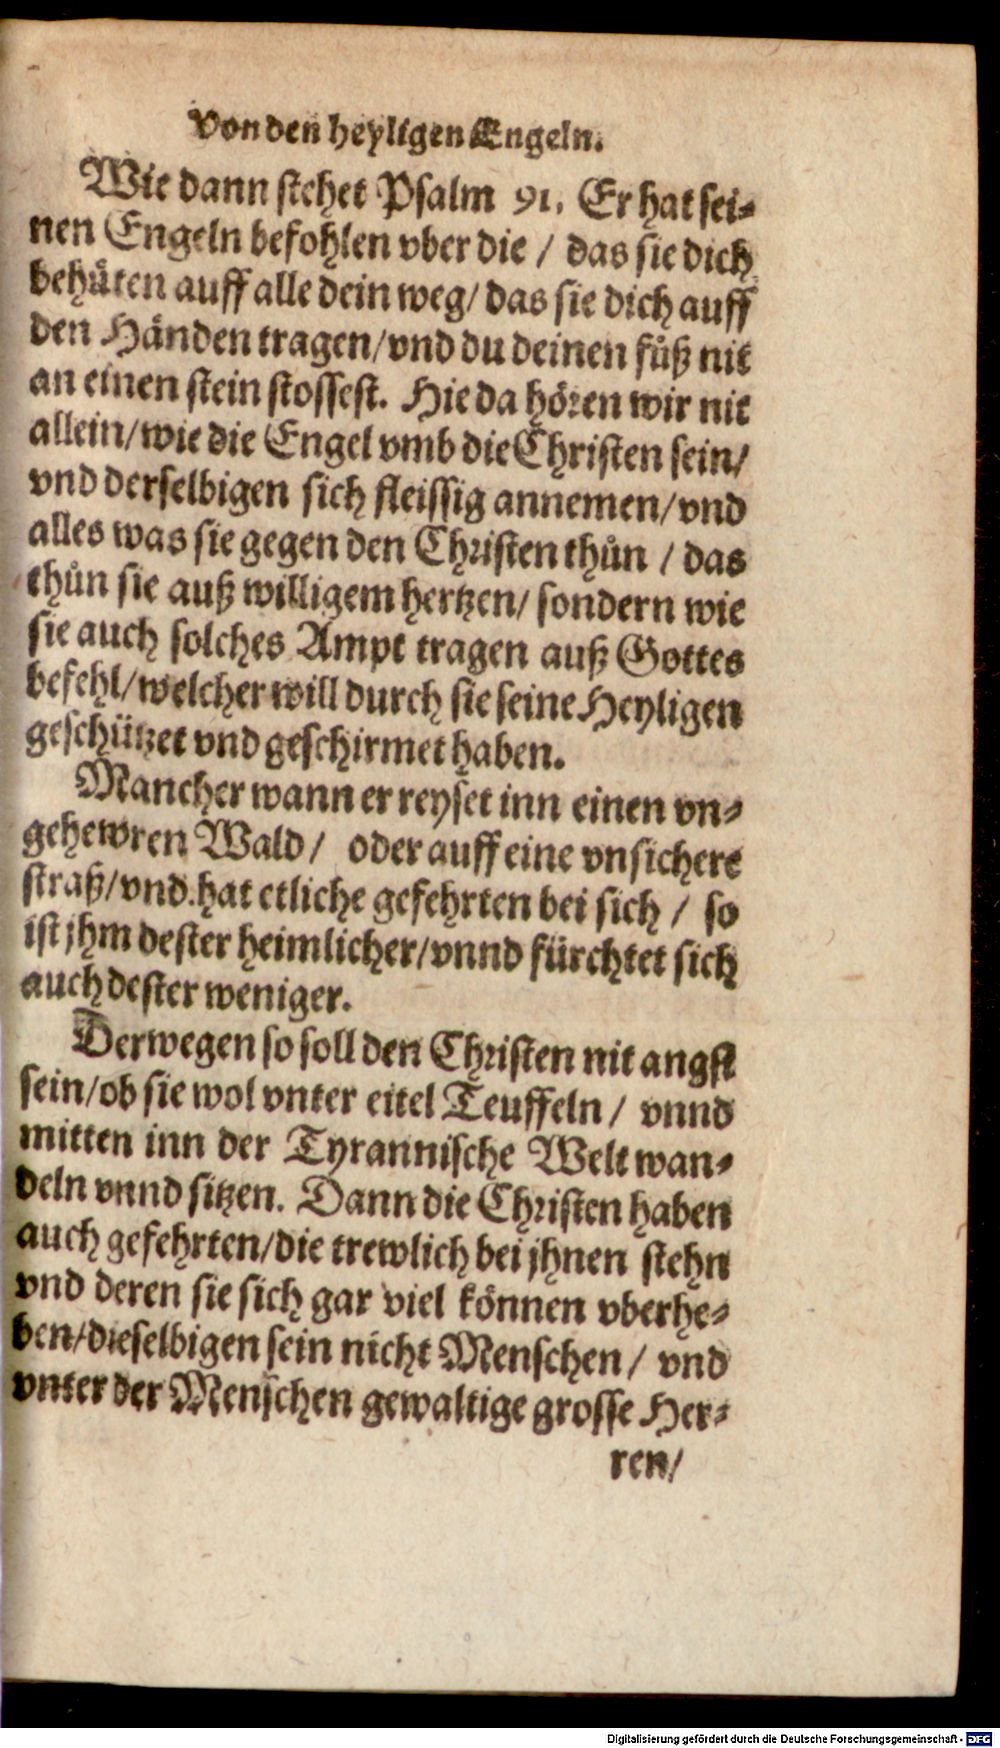 Von den heyligen Engeln.
Wie dann stehet Psalm 91. Er hat sei-
nen Engeln befohlen vber die / das sie dich
behüten auff alle dein weg / das sie dich auff
den Händen tragen / vnd du deinen fůß nit
an einen stein stossest. Hie da hören wir nit
allein / wie die Engel vmb die Christen sein /
vnd derselbigen sich fleissig annemen / vnd
alles was sie gegen den Christen thůn / das
thůn sie auß willigem hertzen / sondern wie
sie auch solches Ampt tragen auß Gottes
befehl / welcher will durch sie seine Heyligen
geschützet vnd geschirmet haben.
Mancher wann er reyset inn einen vn-
gehewren Wald / oder auff eine vnsichere
straß / vnd hat etliche gefehrten bei sich / so
ist jhm dester heimlicher / vnnd fürchtet sich
auch dester weniger.
Derwegen so soll den Christen nit angst
sein / ob sie wol vnter eitel Teuffeln / vnnd
mitten inn der Tyrannische Welt wan-
deln vnnd sitzen. Dann die Christen haben
auch gefehrten / die trewlich bei jhnen stehn
vnd deren sie sich gar viel können vberhe-
ben / dieselbigen sein nicht Menschen / vnd
vnter der Menschen gewaltige grosse Her-
ren /
Digitalisierung gefördert durch die Deutsche Forschungsgemeinschaft - DFG